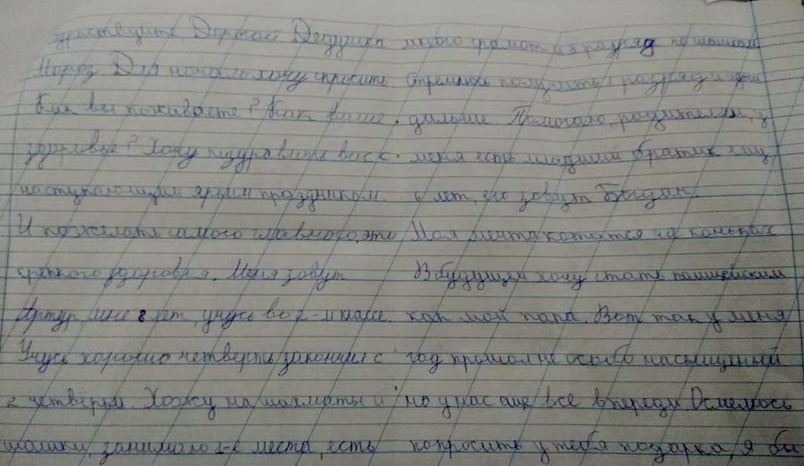 здраствуйте, Дорогой Дедушка
Мороз. Для начала хочу спросить
Как вы поживаете? Как ваше
здоровье? Хочу поздравить вас с
наступающим ярким праздником.
И пожелать самого главного, это
крепкого здоровья. Меня зовут
Артур, мне 8 лет, учусь во 2-м классе.
Учусь хорошо четверть закончил с
2 четвёрки. Хожу на шахматы и
шашки, занимаю 1-е места, есть
много грамот и 3 разряд по шашкам
Стремлюсь получить 1 разряд и идти
дальше. Помогаю родителям, у
меня есть младший братик ему
6 лет, его зовут Богдан.
Моя мечта кататся на коньках
В будущем хочу стать полицейским
как мой папа. Вот так у меня
год прошол не особо насыщеный
но у нас еще все впереди. Осмелюсь
попросить у тебя подарка, я бы